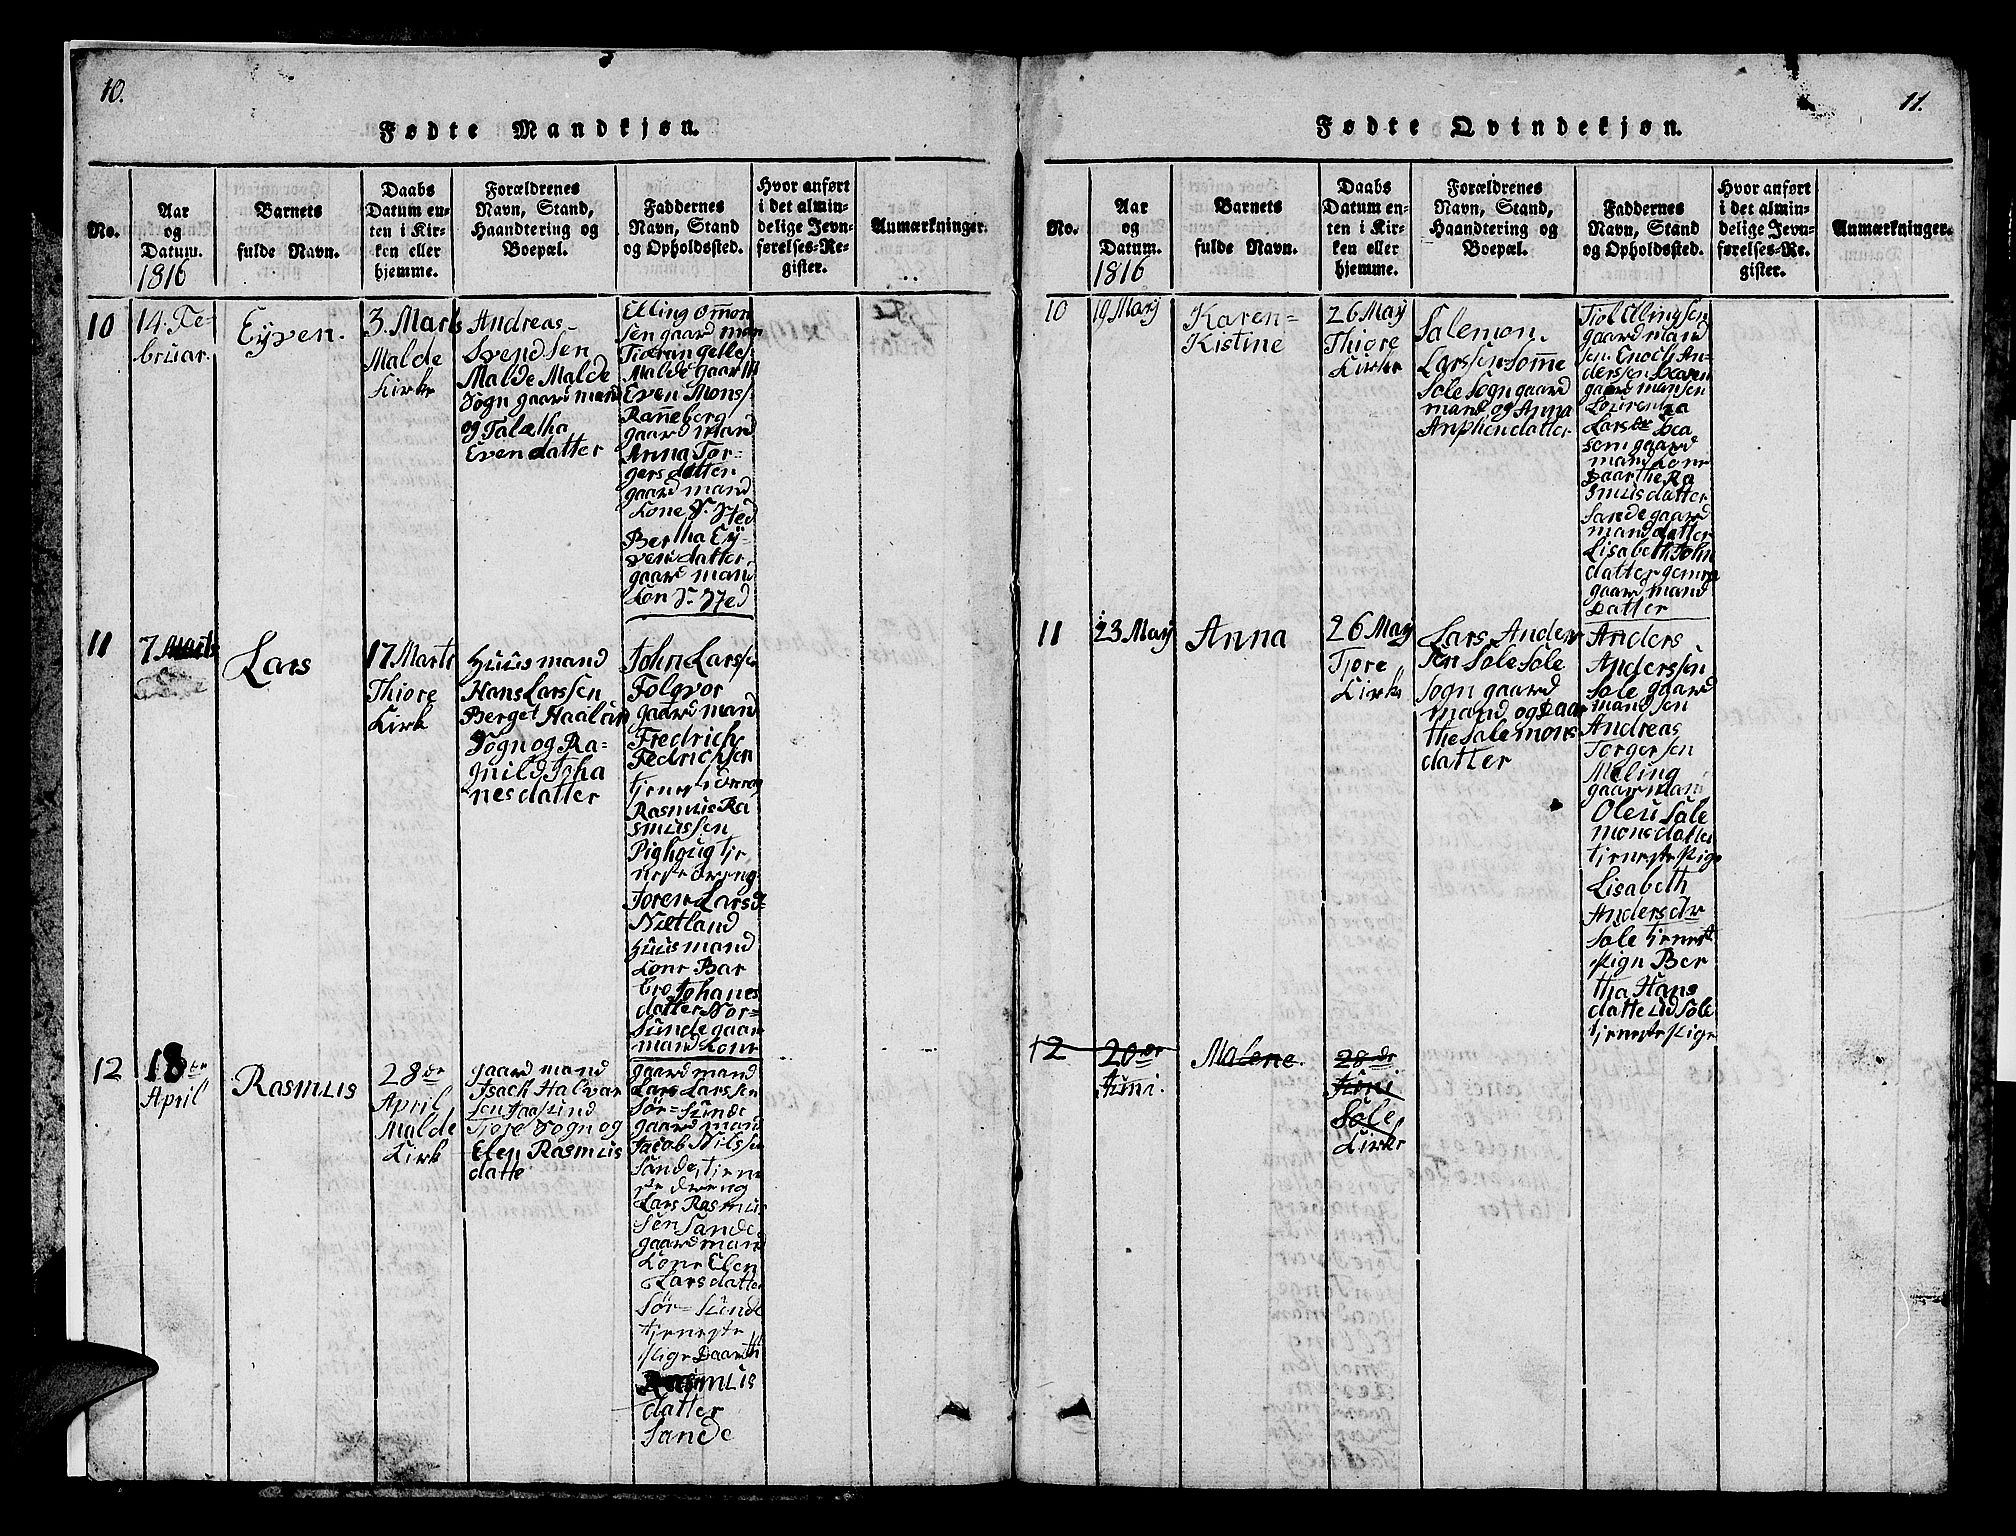 10.
Fødte Mandkjøn.
No.
Aar
og
Datum.
1816
Barnets
fulde Navn.
Daabs
Datum en-
ten i Kir-
ken eller
hjemme.
Forældrenes
Navn, Stand,
Haandtering og
Boepæl.
Faddernes
Navn, Stand
og Opholdssted.
Hvor anført
i det almin-
delige Jevn-
førelses-Re-
gister.
Anmærkninger.
10
14. Fe-
bruar.
Eyven.
3. Marts
Malde
Kirke
Andreas
Svendsen
Malde Malde
Sogn gaard mand
og Talætha
Evendatter
Elling Ommon
sen gaard man
Malde gaard
Even Mons
Ranneborg
gaard mand
Anna Tor-
gersdatter
gaard mand
Kone S. Sted
Bertha Ey-
vendatter
gaard mand
Kon S. Sted
11
7 Marts
Lars
17 Marti
Thiore
Kirk
Huusmand
Hans Larssen
Berget Haaland
Sogn og Ra-
gnild Joha
nesdatter
John Larssen
Folqvor
gaard mand
Fredrich
Fedrichsen
Rasmus Ra
smussen
neste dreng
Toren Larsd
Nætland
Huusmand
Kone Bar
bro Johanes
datter Nor-
Sunde gaar
mand Kone
12
18 er
April
Rasmus
28 er
April
Malde
Kirk
gaard mand
Isach Halvar
sen Jaasund
Tjore Sogn og
Elen Rasmus
datte
gaard mand
Lars Larssen
Sör-Sunde
gaard mand
Jacob Nilssen
Sande, tjene
ste dreng
Lars Rasmus
sen Sande
gaard mand
Kone Elen
Larsdatter
Sör-Sunde
tjeneste
Pige Daarth
Rasmus
datter
Sande
11.
Fødte Qvindekjøn.
No.
Aar
og
Datum.
1816
Barnets
fulde Navn.
Daabs
Datum en-
ten i Kir-
ken eller
hjemme.
Forældrenes
Navn, Stand,
Haandtering og
Boepæl.
Faddernes
Navn, Stand
og Opholdssted.
Hvor anført
i det almin-
delige Jevn-
førelses-Re-
gister.
Anmærkninger.
10
19 May
Karen-
Kistine
26 May
Thiore
Kirke
Salemon
Larssen Somme
Sole Sogn gaard
mand og Anna
datter
gaard mand
sen Enoch An-
derssen
gaard mansen
Lars
gaard
mand Kone
Daarthe Ra
smusdatter
Sande gaard
mand datter
Lisabeth John
datter
gaard mand
Datter
11
23 May
Anna
26 May
Tjore
Kirk
Lars Ander
sen Sole Sole
Sogn gaard
mand og Daar
the Salemons
datter
Anders
Anderssen
Sole gaard
mand sen
Andreas
Torgersen
Meling
gaard mand
Oleu Sale
monsdatter
tjeneste Pige
Lisabeth
Andersdr
Sole tjenest
Pign Ber
tha Hans
datte
tjeneste Pige
12
20 er
Juni.
Malene.
28 de
Juni
Sole
Kirke